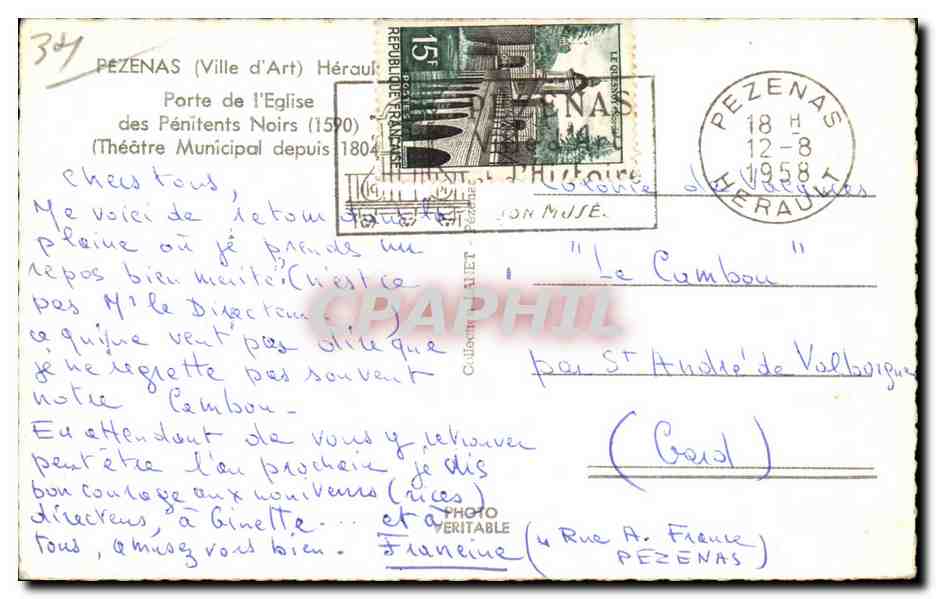 34
PÉZENAS (Ville d'Art) Hérault
Porte de l'Eglise
des Pénitents Noirs (1590)
(Théâtre Municipal depuis 1804
15F
REPUBLIQUE FRANÇAISE
POSTES
LE QUESNOY
PEZENAS
Ville d'Art
et d'Histoire
SON MUSÉE
PEZENAS
18 H
12-8
1958
HERAULT
Chers tous,
Me voici de retour dans la
plaine où je prends un
repos bien mérité, (n'est ce
pas Mr le Directeur)
ce qui ne veut pas dire que
je ne regrette pas souvent
notre Cambou -
En attendant de vous y retrouver
peut être l'an prochain je dis
bon courage aux moniteurs (rices)
directeurs, à Ginette.... et à
tous, amusez vous bien - Francine (4 Rue A. France
PEZENAS)
Collection - Pézenas
PHOTO
VERITABLE
Colonie de Vacances
"Le Cambou"
par St André de Valborgne
(Gard)
CPAPHIL